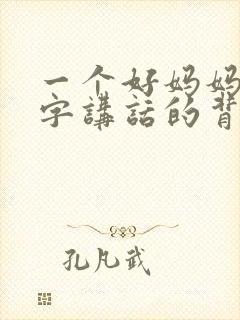 一个好妈妈
字講話的背
孔凡武